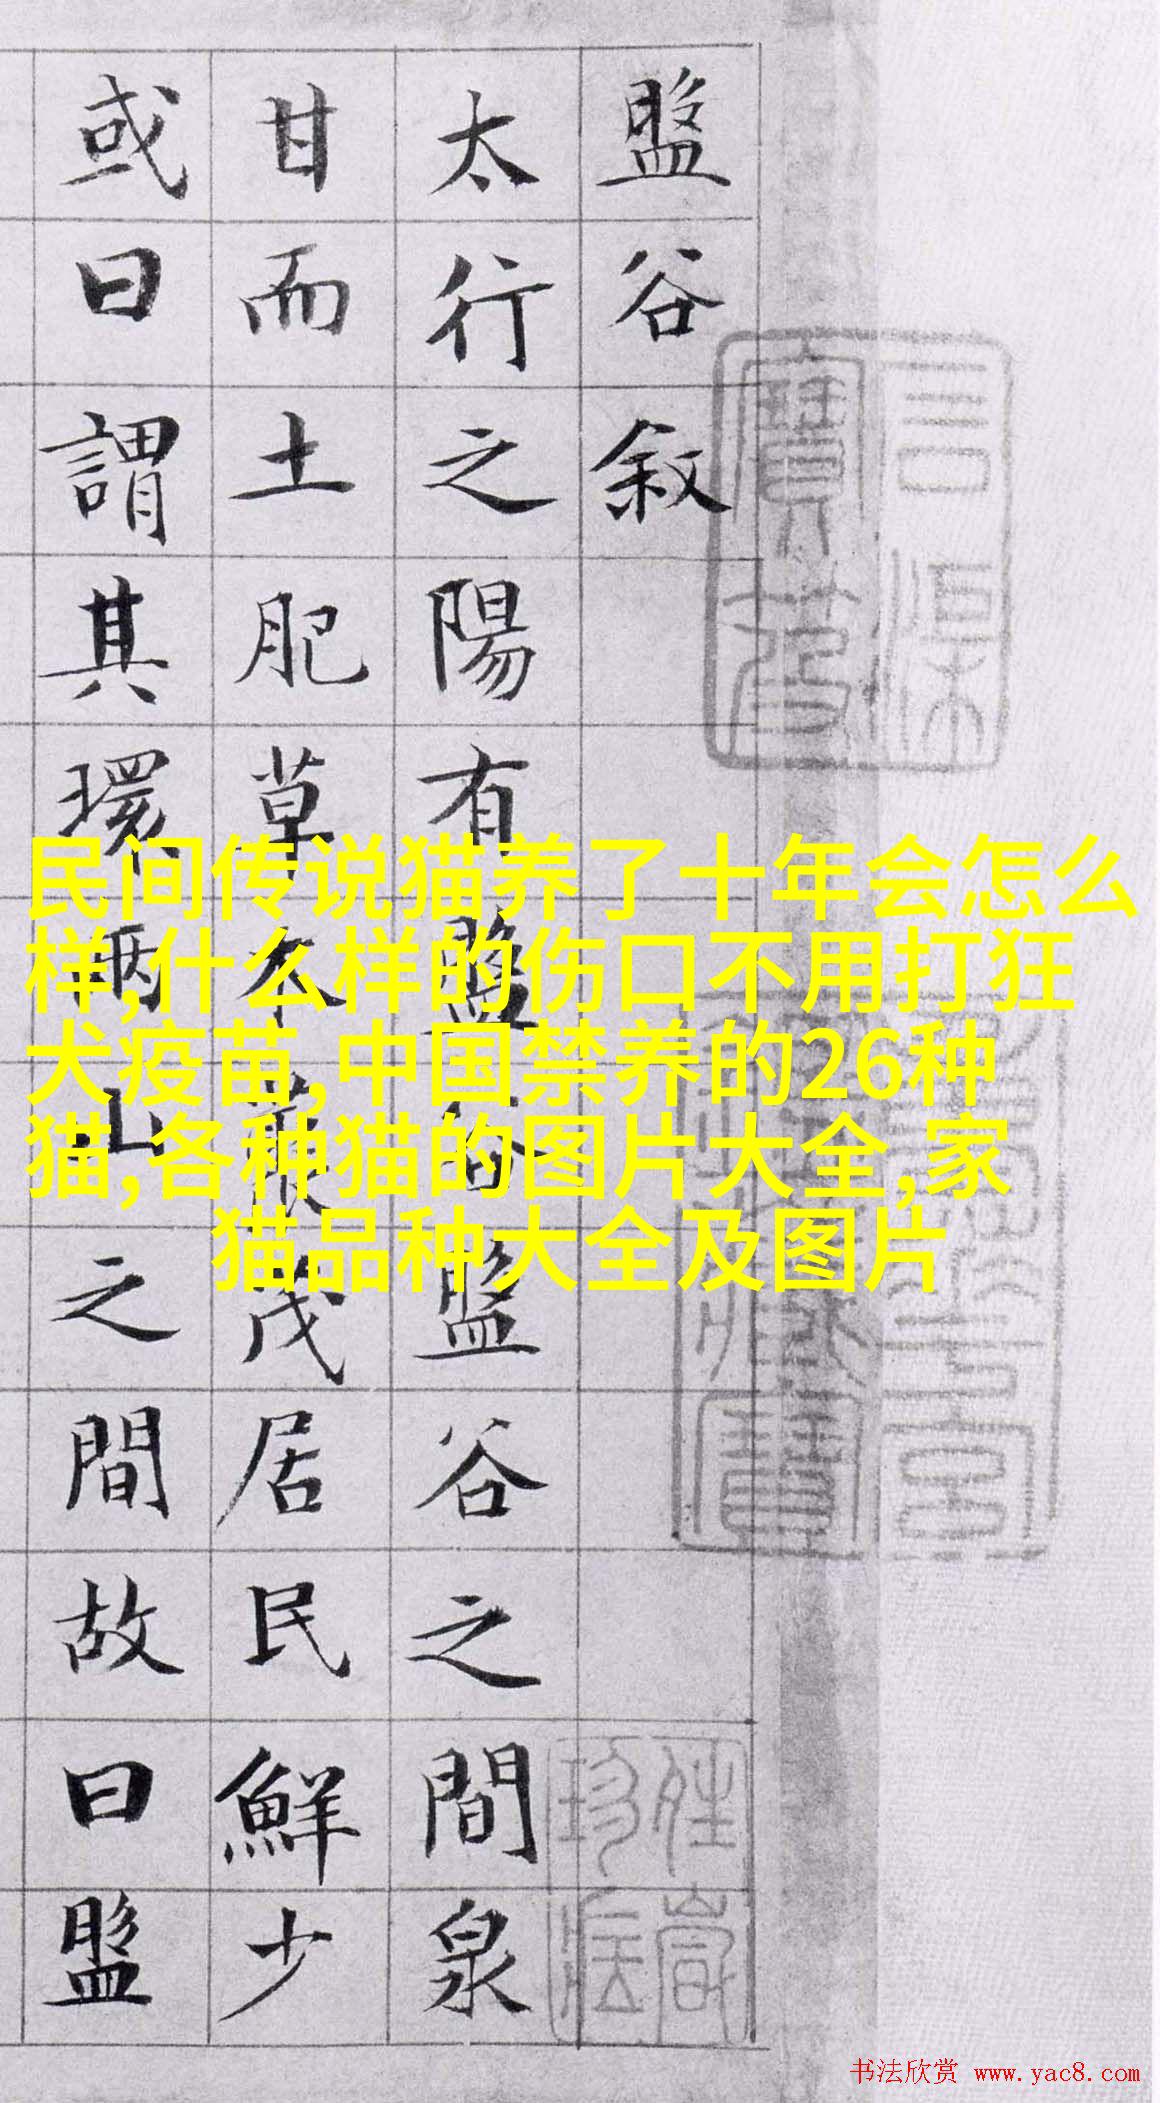 盤谷敘
太行之陽有盤谷盤谷之間泉
甘而土肥草木藂茂居民鮮少
或曰謂其環兩山之間故曰盤
民间传说猫养了十年会怎么
样,什么样的伤口不用打狂
犬疫苗,中国禁养的26种
猫,各种猫的图片大全,家
猫品种大全及图片
书法欣赏 www.yac8.com